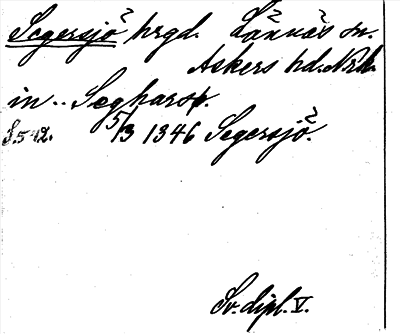 Segersjö hrgd. Lännäs sn.
Askers hd. Nrk.
in .. Segharsø.
S. 542. 5/3 1346 Segersjö.
Sv. dipl. V.